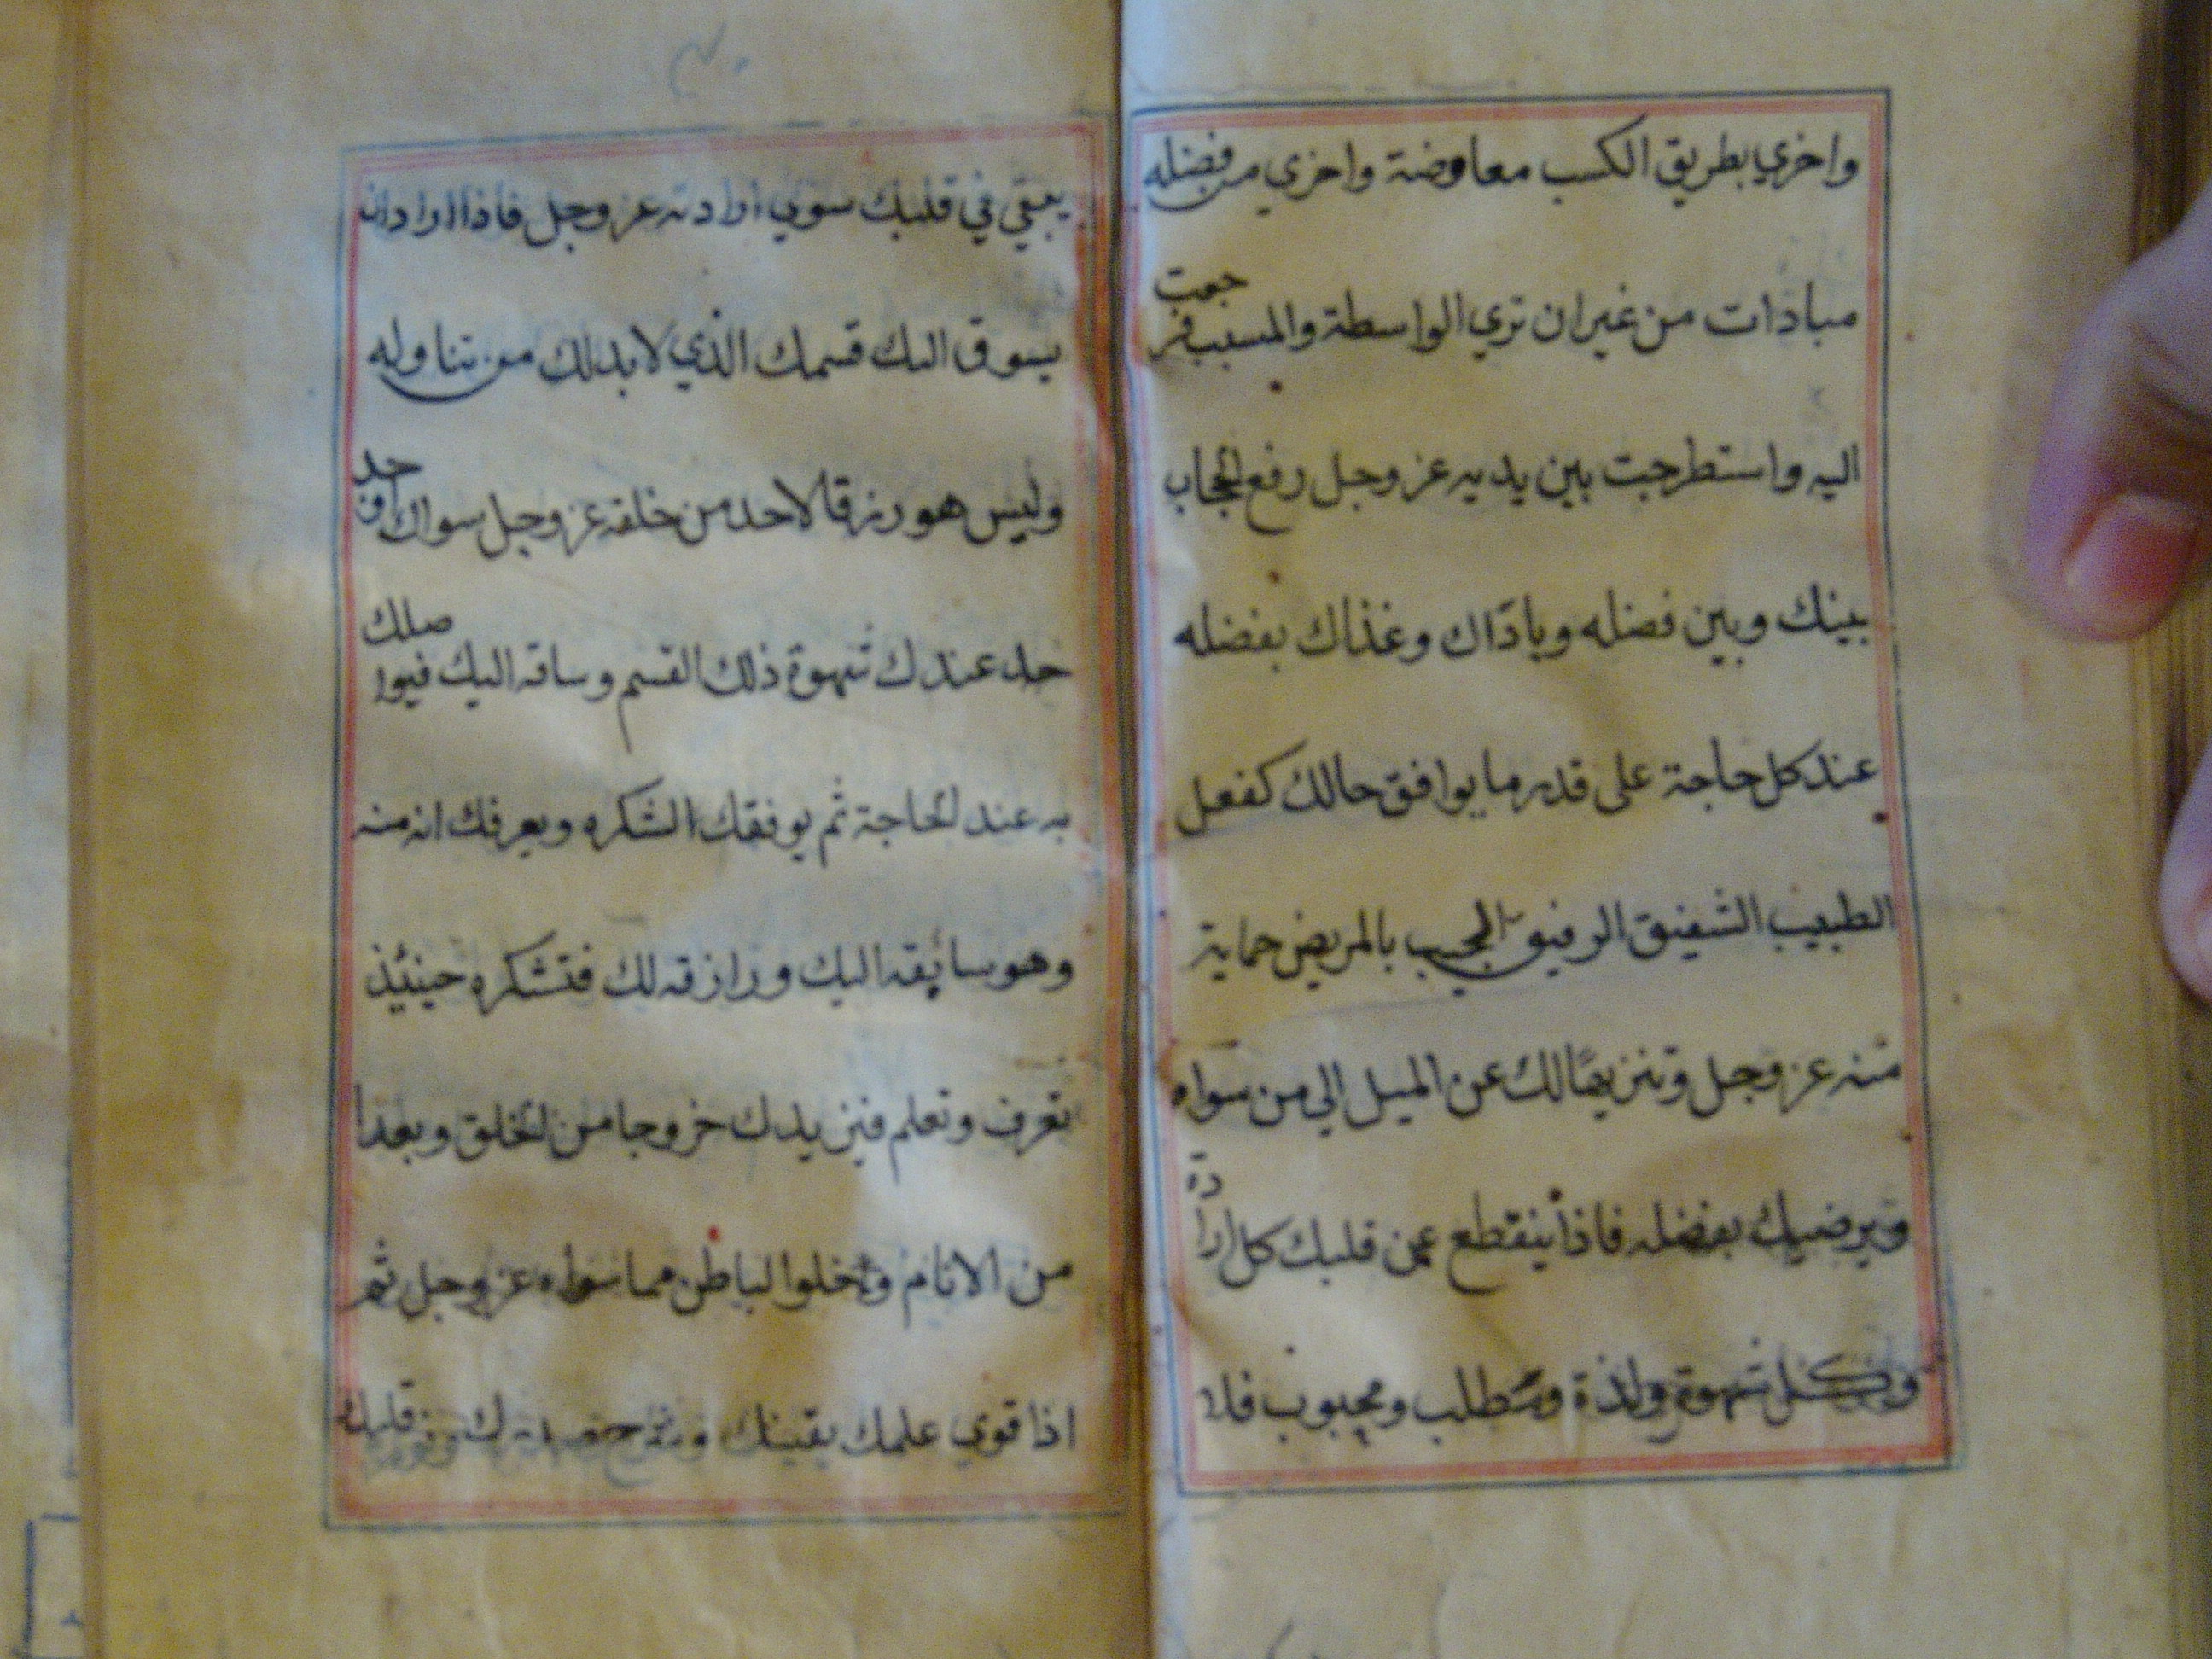 واخري بطريق الكسب معاوضة واخري من فضله
مبادات من غيران تري الواسطة والمسبب فرجعت
اليه واستطرحت بين يديه عز وجل رفع الحجاب
بينك وبين فضله وباداك وغذاك بفضله
عند كل حاجة على قدر ما يوافق حالك كفعل
الطبيب الشفيق الرفيق الحبيب بالمريض حماية
منه عز وجل وتنزيها لك عن الميل الي من سواه
ويرضيك بفضله فاذا ينقطع عن قلبك كل ارادة
وكل شهوة ولذة ومطلب ومحبوب فلا
يبقي في قلبك سوي ارادته عز وجل فاذا اراد ان
يسوق اليك قسمك الذي لا بد لك من تناوله
وليس هو رزقا لاحد من خلقه عز وجل سواك اوجد
حد عندك شهوة ذلك القسم وساقه اليك فيواصلك
به عند الحاجة ثم يوفقك الشكره ويعرفك انه منه
وهو سائقه اليك ورازقه لك فتشكره حينئذ
تعرف وتعلم فيزيدك خروجا من الخلق وبعدا
من الانام وتخلوا لباطن مما سواه عز وجل ثم
اذا قوي علمك يقينك قلبك